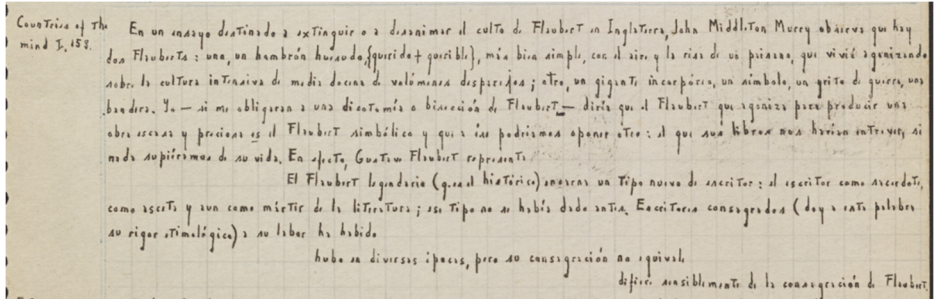 Countries of the
mind I, 158.
En un ensayo destinado a extinguir o a desanimar el culto de Flaubert en Inglaterra, John Middleton Murry observa que hay
dos Flauberts: uno, un hombrón huesudo, {querido + querible}, más bien simple, con el aire y la risa de un paisano, que vivió agonizando
sobre la cultura intensiva de media docena de volúmenes desparejos; otro, un gigante incorpóreo, un símbolo, un grito de guerra, una
bandera. Yo — si me obligaran a una dicotomía o bisección de Flaubert — diría que el Flaubert que agoniza para producir una
obra escasa y preciosa es el Flaubert simbólico y que a ése podríamos oponer otro: el que sus libros nos harían entrever, si
nada supiéramos de su vida. En efecto, Gustave Flaubert representa
El Flaubert legendario (que es el histórico) encarna un tipo nuevo de escritor: el escritor como sacerdote,
como asceta y aun como mártir de la literatura; ese tipo no se había dado antes. Escritores consagrados (doy a esta palabra
su rigor etimológico) a su labor ha habido
hubo en diversas épocas, pero su consagración no equivale
difiere sensiblemente de la consagración de Flaubert.